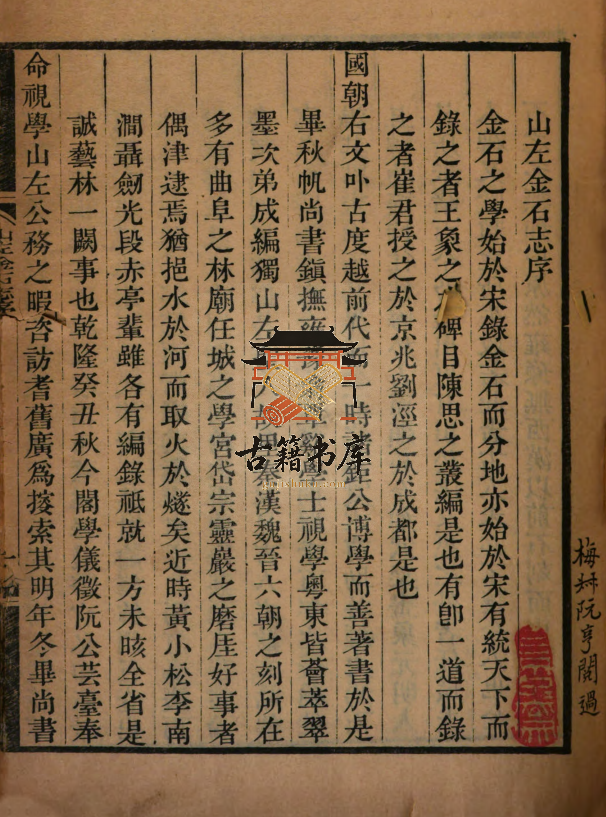 山左金石志序
金石之學始於宋錄金石而分地亦始於宋有統天下而
錄之者王象之碑目陳思之叢編是也有卽一道而錄
之者崔君授之於京兆劉涇之於成都是也
國朝右文卟古度越前代而一時諸鉅公博學而善著書於是
畢秋帆尚書鎮撫雍豫翁覃谿學士視學粵東皆薈萃翠
墨次弟成編獨山左秦漢魏晉六朝之刻所在
多有曲阜之林廟任城之學宮岱宗靈巖之磨厓好事者
偶津逮焉猶挹水於河而取火於燧矣近時黃小松李南
澗聶劒光段赤亭輩雖各有編錄祇就一方未晐全省是
誠藝林一闕事也乾隆癸丑秋今閣學儀徵阮公芸臺奉
命視學山左公務之暇咨訪耆舊廣爲搜索其明年冬畢尚書
梅叔阮亨閱過
古籍书库